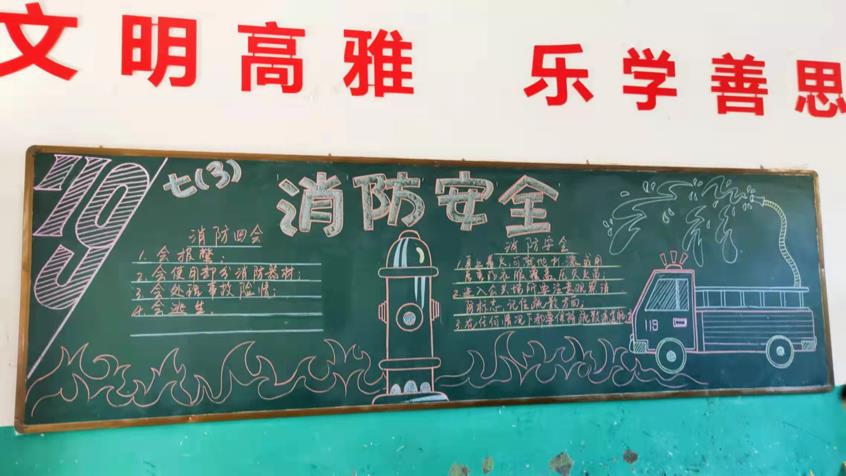 文明高雅 乐学善思
119
七(3)
消防安全
消防四会
1.会报警;
2.会使用部分消防器材;
3.会处理事故险情;
4.会逃生.
消防安全
2.进入公共场所要注意观察消
防标志,记住疏散方向.
3.在任何情况下都要保持疏散
119